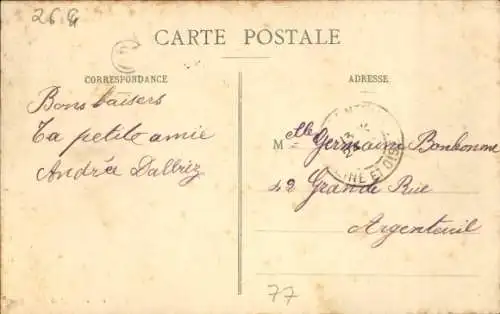 26 G
CARTE POSTALE
CORRESPONDANCE
Bons baisers
Ta petite amie
Andrée Dalbiez
ADRESSE
Mlle Germaine Bonbonne
42 Grande Rue
Argenteuil
SEINE ET OISE
77